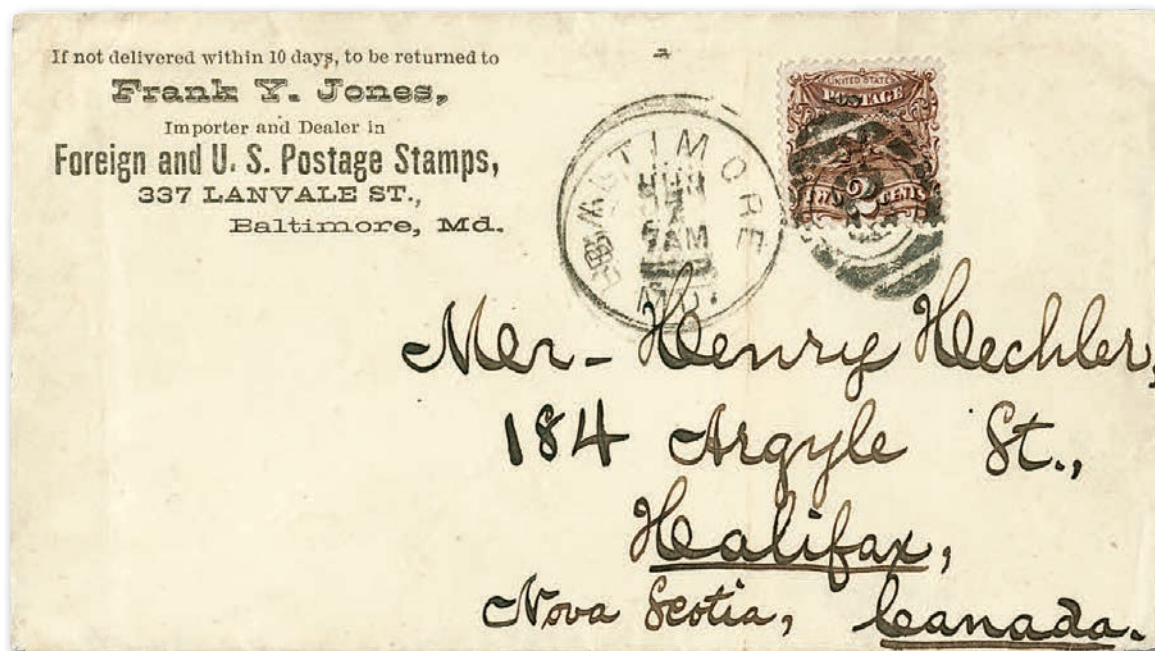 If not delivered within 10 days, to be returned to
Frank Y. Jones,
Importer and Dealer in
Foreign and U. S. Postage Stamps,
337 LANVALE ST.,
Baltimore, Md.
BALTIMORE
7AM
MD.
UNITED STATES
POSTAGE
TWO 2 CENTS
Mr- Henry Hechler,
184 Argyle St.,
Halifax,
Nova Scotia, Canada.